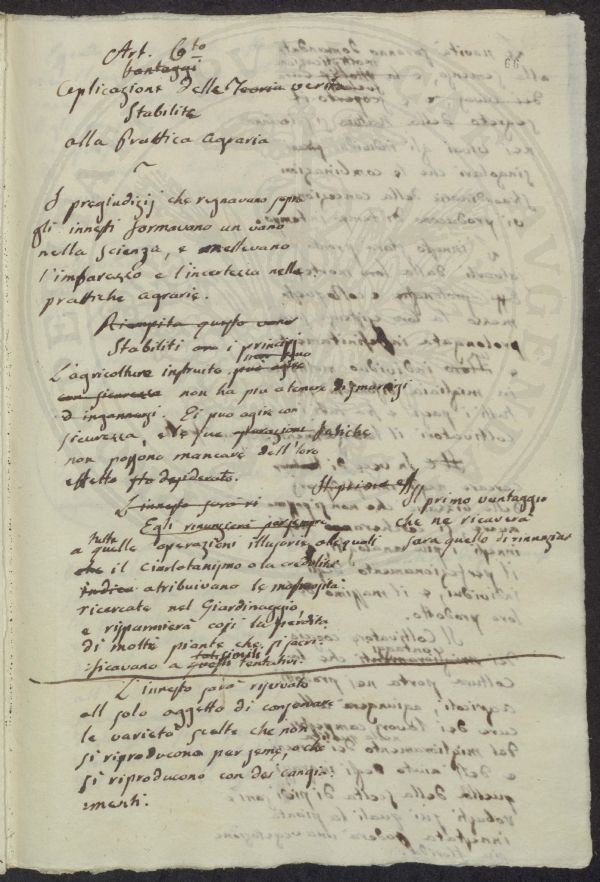 66
Art. 6to
Vantaggi
Applicazione delle Teoria verita
Stabilite
alla Prattica agraria
I pregiudizij che regnavano sopra
gli innesti formavano un vano
nella scienza, e mettevano
l'imbarazzo e l'incertezza nelle
prattiche agrarie.
Riempito questo vano
Stabiliti i principj
L'agricoltore instruito può agire
con sicurezza non ha piu a temere di smarrirsi
o ingannarsi. Ei può agire con
sicurezza, e le sue operazioni fatiche
non possono mancare dell'loro
effetto desiderato.
L'innesto sarà ri
Il primo eff
Il primo vantaggio
che ne ricaverà
sarà quello di rinunziare
Egli rinuncerà per sempre
tutte
a quelle operazioni illusorie alle quali
che il Ciarlatanismo o la credulità
attribuivano le
ricercate nel Giardinaggio,
e risparmierà così la perdita
di molte piante che si sacri-
ficavano a questi tentativi.
L'innesto sarà riservato
all solo oggetto di conservare
le varietà scelte che non
si riproducono per seme, o che
si riproducono con dei cangia-
menti.